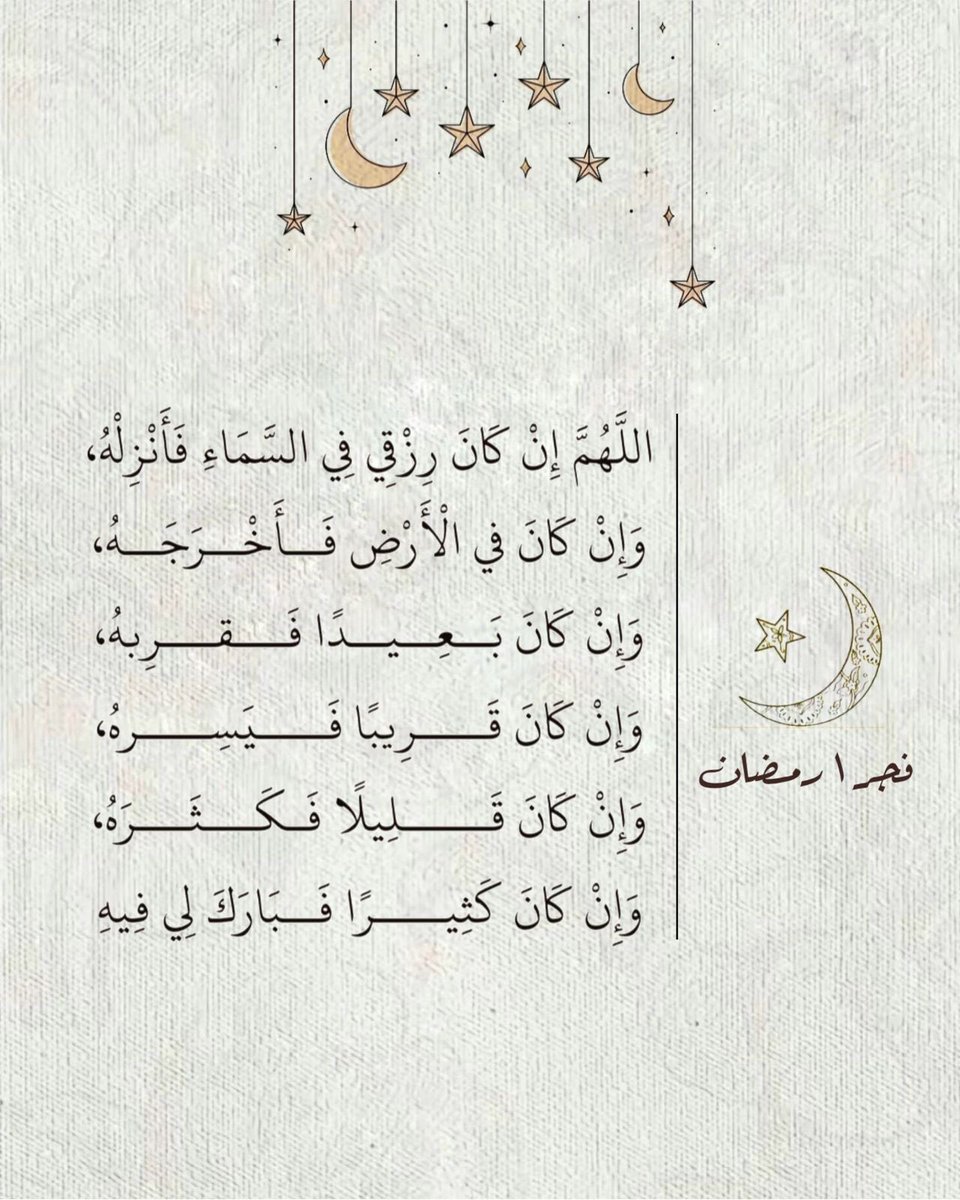 اللَّهُمَّ إِنْ كَانَ رِزْقِي فِي السَّمَاءِ فَأَنْزِلْهُ،
وَإِنْ كَانَ في الْأَرْضِ فَأَخْرَجَهُ،
وَإِنْ كَانَ بَعِيدًا فَقرِبهُ،
وَإِنْ كَانَ قَرِيبًا فَيَسِرهُ،
وَإِنْ كَانَ قَلِيلًا فَكَثَرَهُ،
وَإِنْ كَانَ كَثِيرًا فَبَارَكَ لِي فِيهِ
فجر ١ رمضان